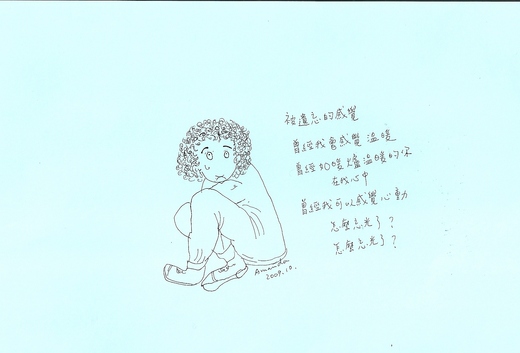 被遺忘的感覺
曾經我會感覺溫暖
曾經如暖爐溫暖的保
在我心中
曾經我可以感覺心動
怎麼忘光了?
怎麼忘光了?
Amanda
2009.10.